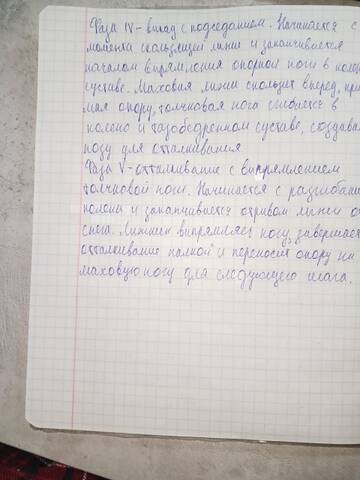 Фаза IV - выпад с подседанием. Начинается с
момента скользящей лыжи и заканчивается
началом выпрямления опорной ноги в колен
суставе. Маховая лыжи скользит вперед,
мая опору, толчковая нога сгибается в
колено и тазобедренном суставе, создавая
позу для отталкивания
Фаза V - отталкивание с выпрямлением
толчковой ноги. Начинается с разгибания
колена и заканчивается отрывом лыжи от
снега. Лыжник выпрямляет ногу, завершает
отталкивание палкой и переносит опору на
маховую ногу для следующего шага.